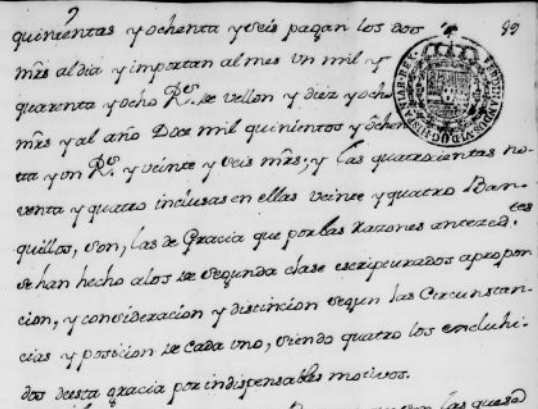 quinientas y ochenta y seis pagan los dos
mrs al dia y importan al mes Un mil y
quarenta y ocho Rs. de vellon y diez y ocho
mrs y al año Doze mil quinientos y ochen
ta y un Rs. y veinte y seis mrs; y las quatrozientas no
venta y quatro inclusas en ellas veinte y quatro Ban-
quillos, son, las de Gracia que por las Razones anteced.tes
se han hecho a los de segunda clase escripturados a propor
cion, y consideracion y distincion segun las Circunstan-
cias y posicion de cada uno, siendo quatro los excluhi-
dos desta gracia por indispensables motivos.
las quese